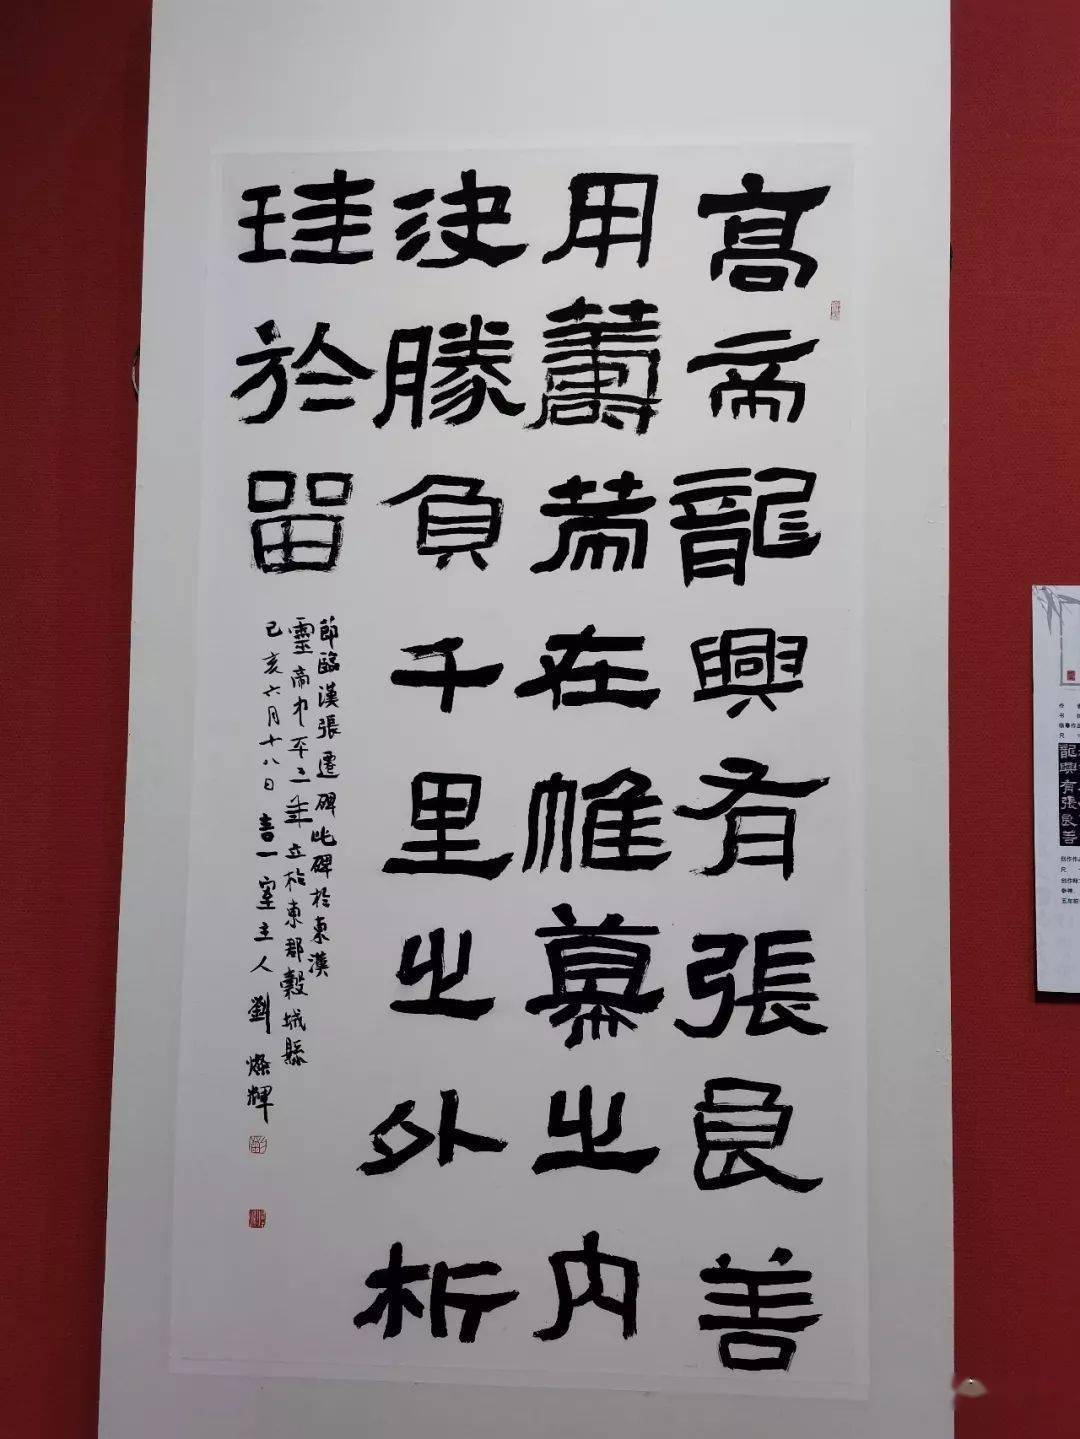 高帝龍興有張良善
用籌策在帷幕之内
決勝負千里之外析
珪於留
節臨漢張遷碑此碑於東漢
靈帝中平三年立於東郡穀城縣
己亥六月十八日喜一室主人劉燦輝
龍興有張良善